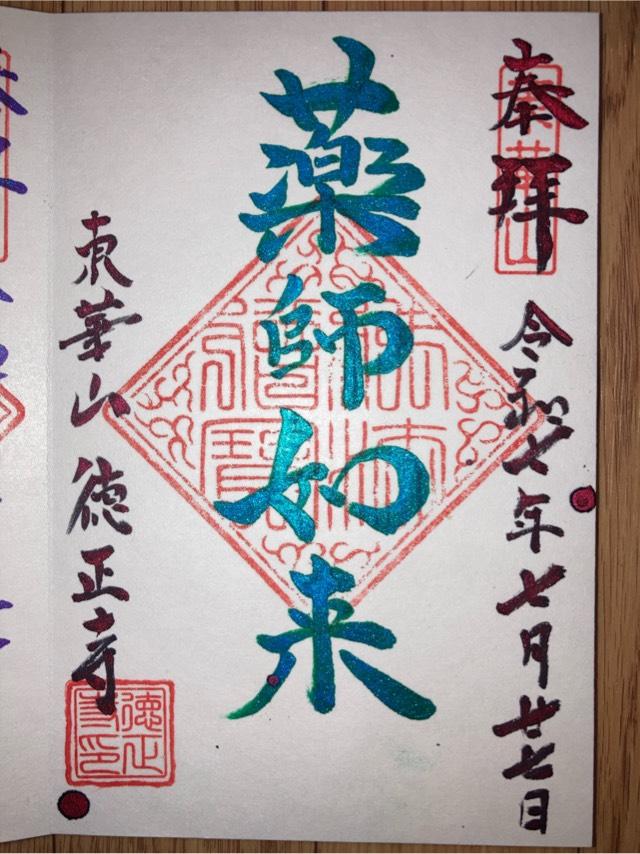 奉拝
東華山
令和七年七月廿七日
薬師如来
東華山 徳正寺
徳正
寺印